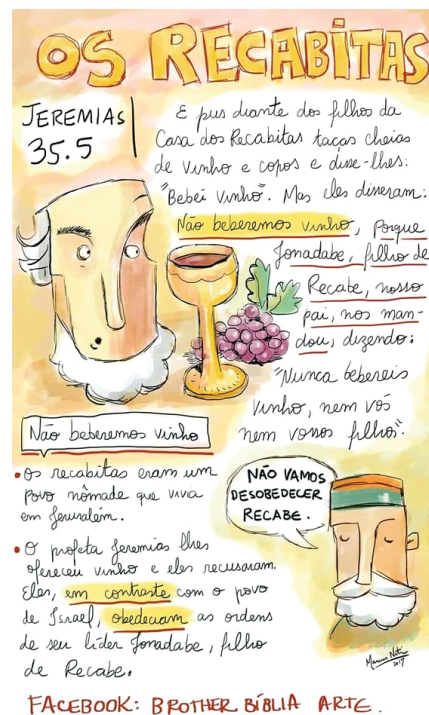 OS RECABITAS
JEREMIAS
35.5
E pus diante dos filhos da
Casa dos Recabitas taças cheias
de vinho e copos e disse-lhes:
"Bebei vinho". Mas eles disseram:
Não beberemos vinho, porque
Jonadabe, filho de
Recabe, nosso
pai, nos man-
dou, dizendo:
"Nunca bebereis
vinho, nem vós
nem vossos filhos".
Não beberemos vinho
• Os recabitas eram um
povo nômade que vivia
em Jerusalém.
• O profeta Jeremias lhes
ofereceu vinho e eles recusaram.
Eles, em contraste com o povo
de Israel, obedeciam as ordens
de seu líder Jonadabe, filho
de Recabe.
NÃO VAMOS
DESOBEDECER
RECABE.
2017
FACEBOOK: BROTHER BÍBLIA ARTE.